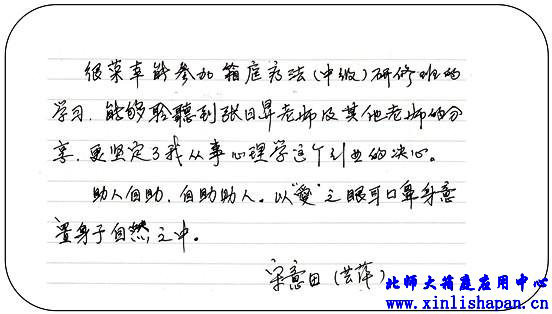 很荣幸能参加箱庭疗法(中级)研修班的
学习,能够聆聽到张日昇老师及其他老师的分
享,更坚定了我从事心理学这个行业的决心。
助人自助,自助助人。以“愛”之眼耳口鼻身意
置身于自然之中。
宋意田(芸萍)
北师大箱庭应用中心
www.xinlishapan.cn